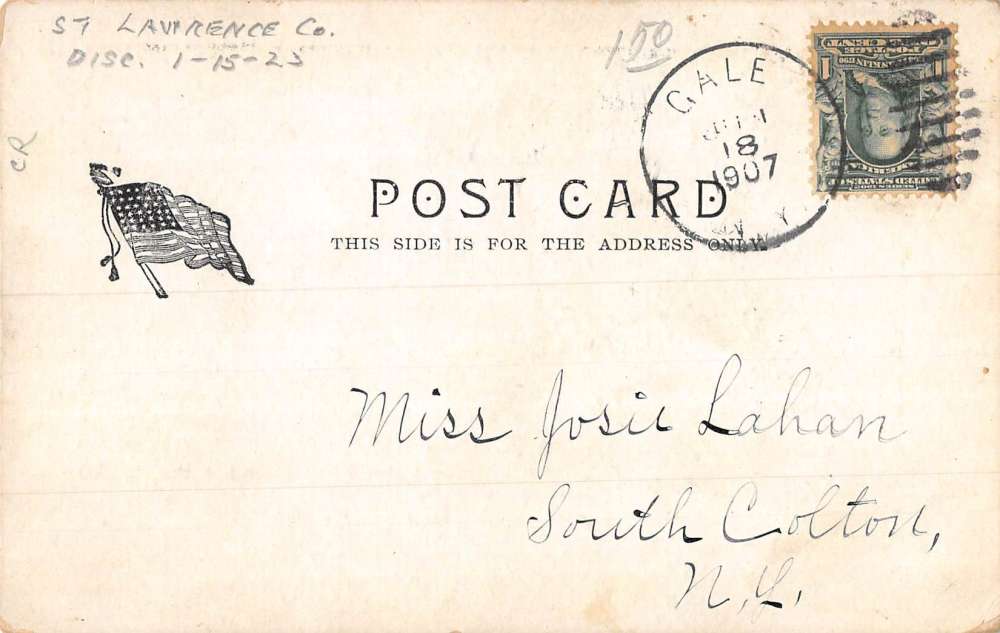 ST LAWRENCE Co.
DISC. 1-15-23
150
CR
GALE
18
1907
N.Y.
POST CARD
THIS SIDE IS FOR THE ADDRESS ONLY.
Miss Josie Lahan
South Colton,
N.Y.